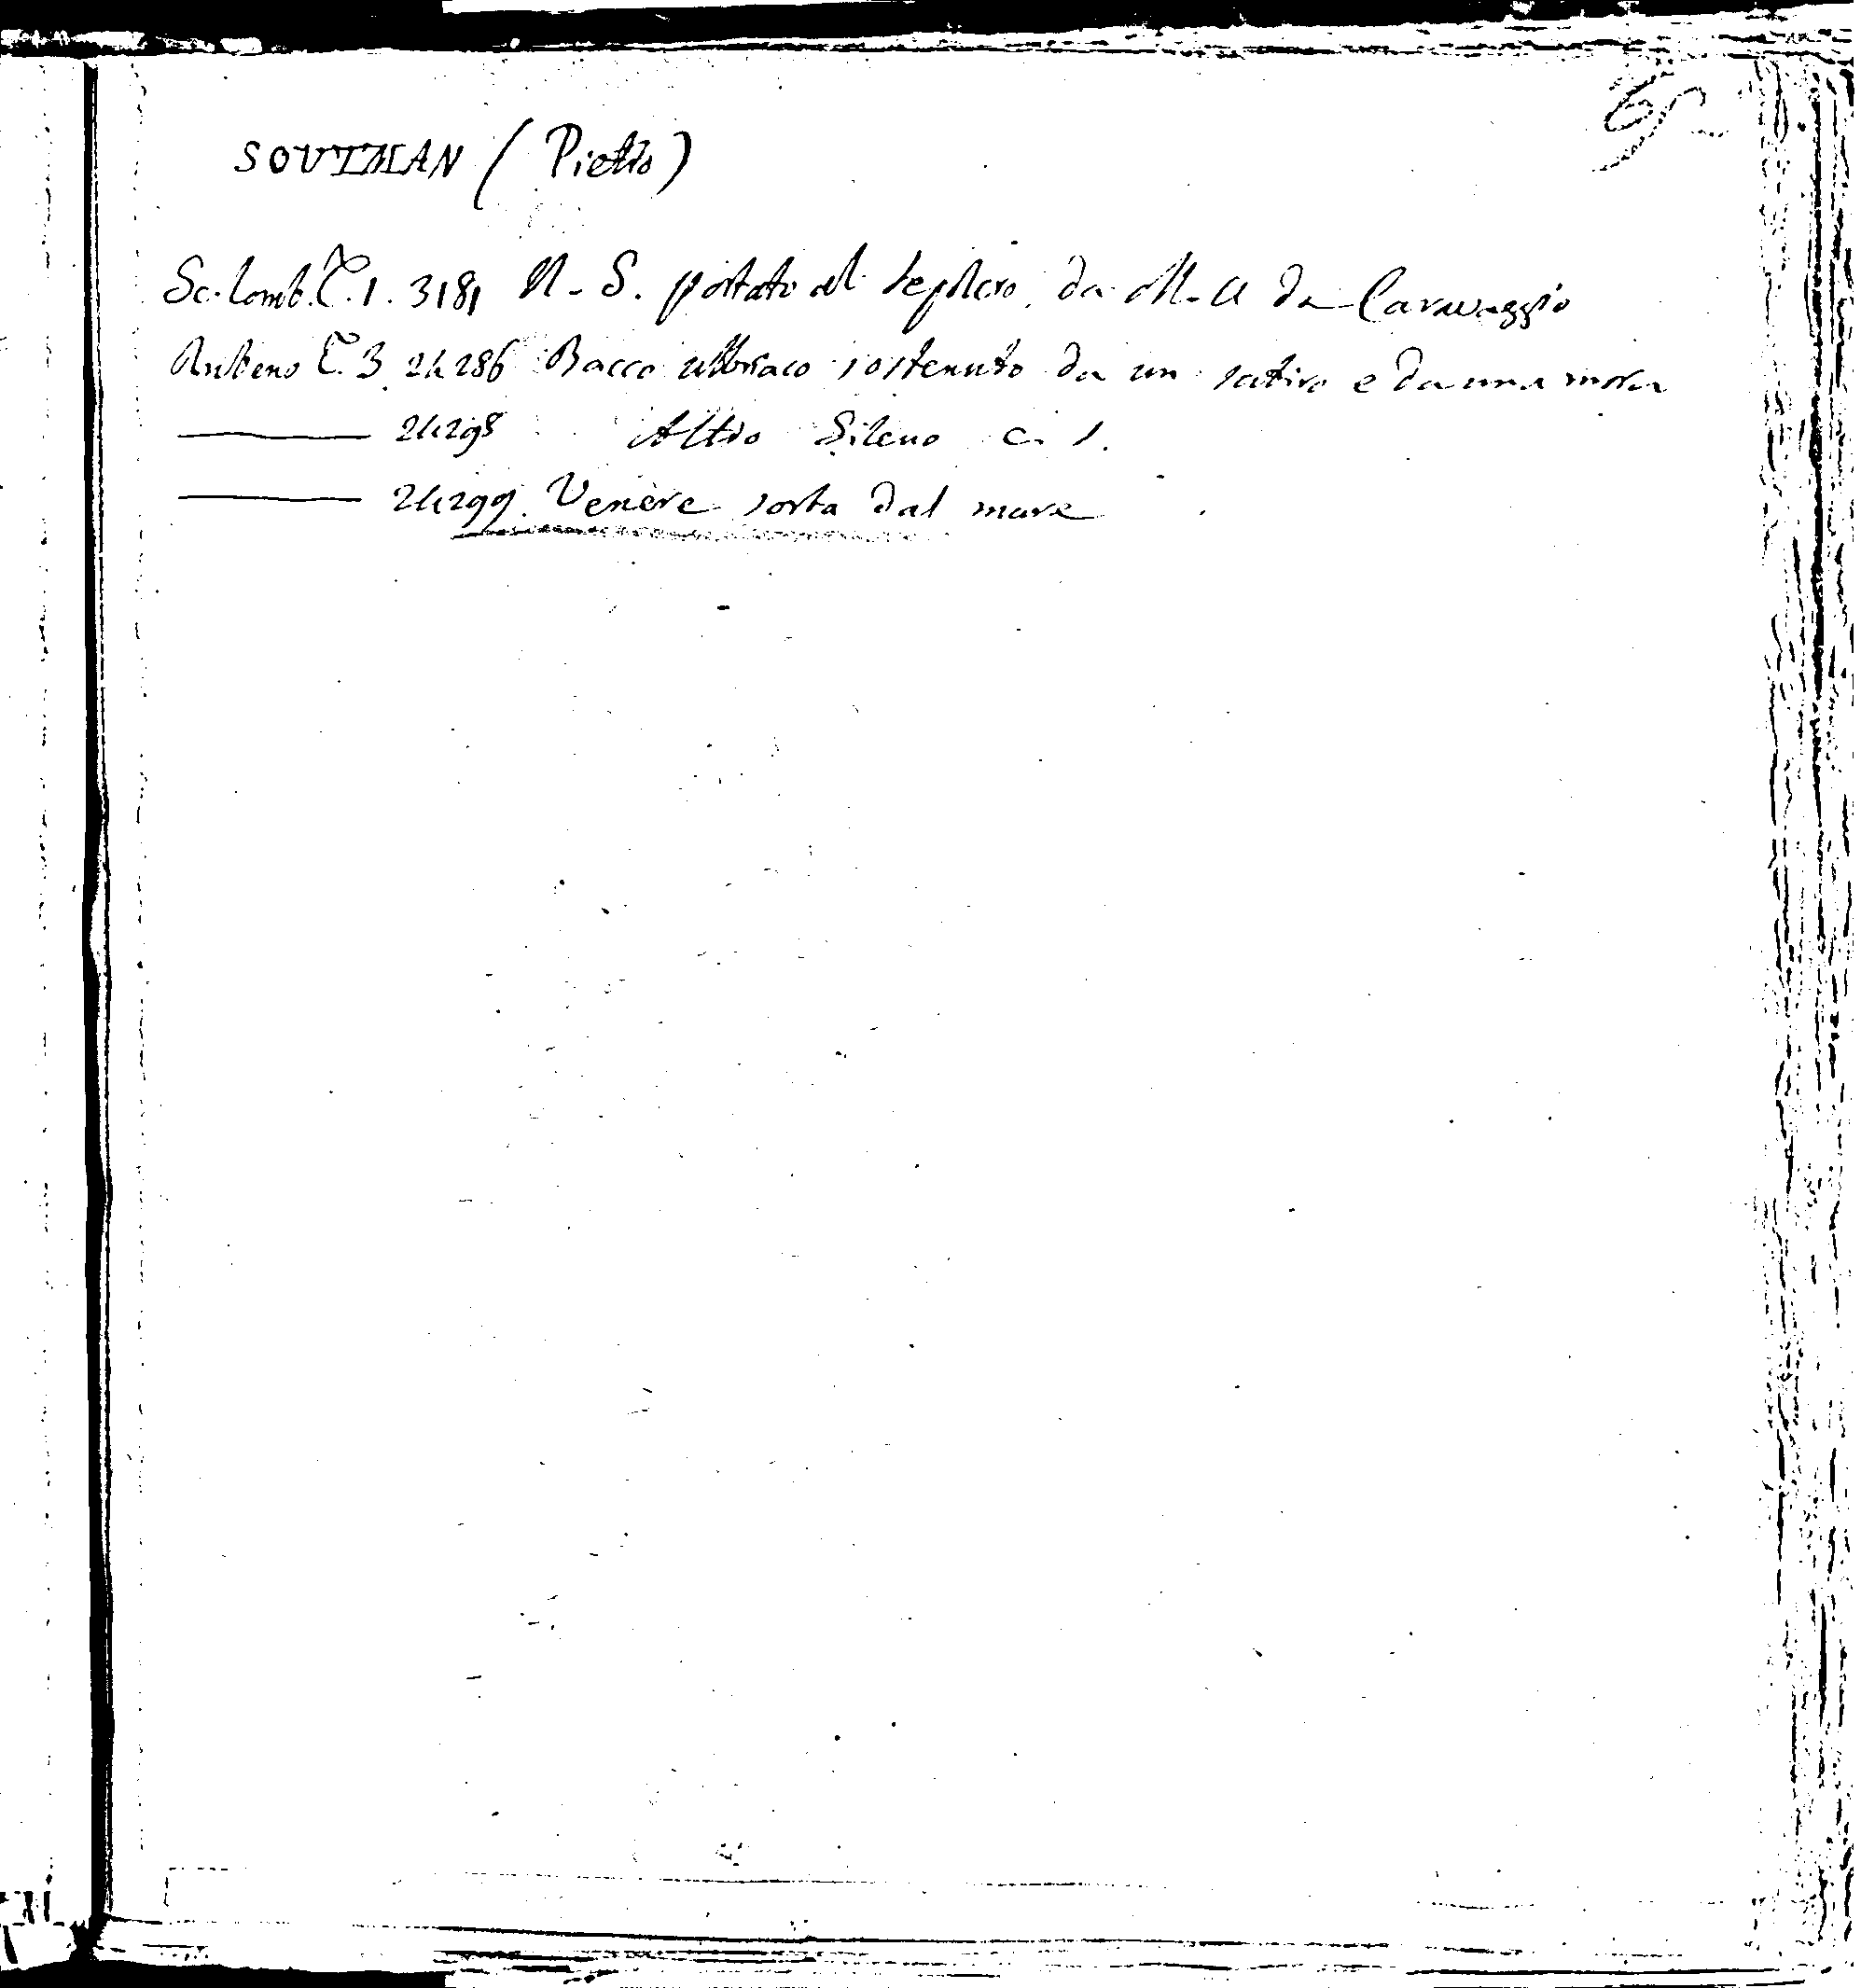 SOUTMAN (Pietro)
Sc. Lomb. T. 1. 3181 N. S. portato al sepolcro, da M. A da Caravaggio
Rubens T. 3. 24286 Bacco ubbriaco sostenuto da un satiro e da una mora
24298 Altro Sileno c. s.
24299. Venere sorta dal mare